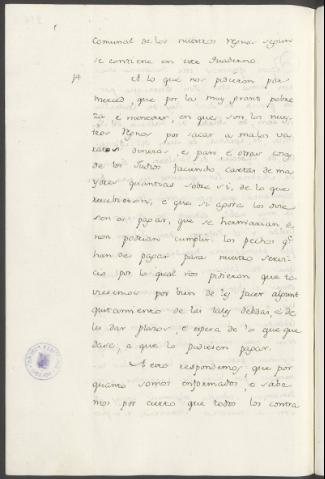 comunal de los nuestros regnos segun
se contiene en este quaderno
A lo que nos pidieron por
merced que por la muy grant pobre
za, e menester, en que son los nues
tros Regnos por sacar a malas va
ratas dineros e pan, e otras cosas
de los Judios faciendo cartas de ma
yores quantias sobre si, de lo que
recibieron, e que si agora los ovie
sen a pagar, que se hermarian, e
non podrian cumplir los pechos q.
han de pagar para nuestro servi
cio por lo qual nos pidieron que to
viesemos por bien de les facer algunt
quitamiento de las tales debdas, e de
les dar plazos, e espera de lo que que
dase, a que lo pudiesen pagar.
A esto respondemos, que por
quanto somos informados, e sabe
mos por cierto que todos los contra